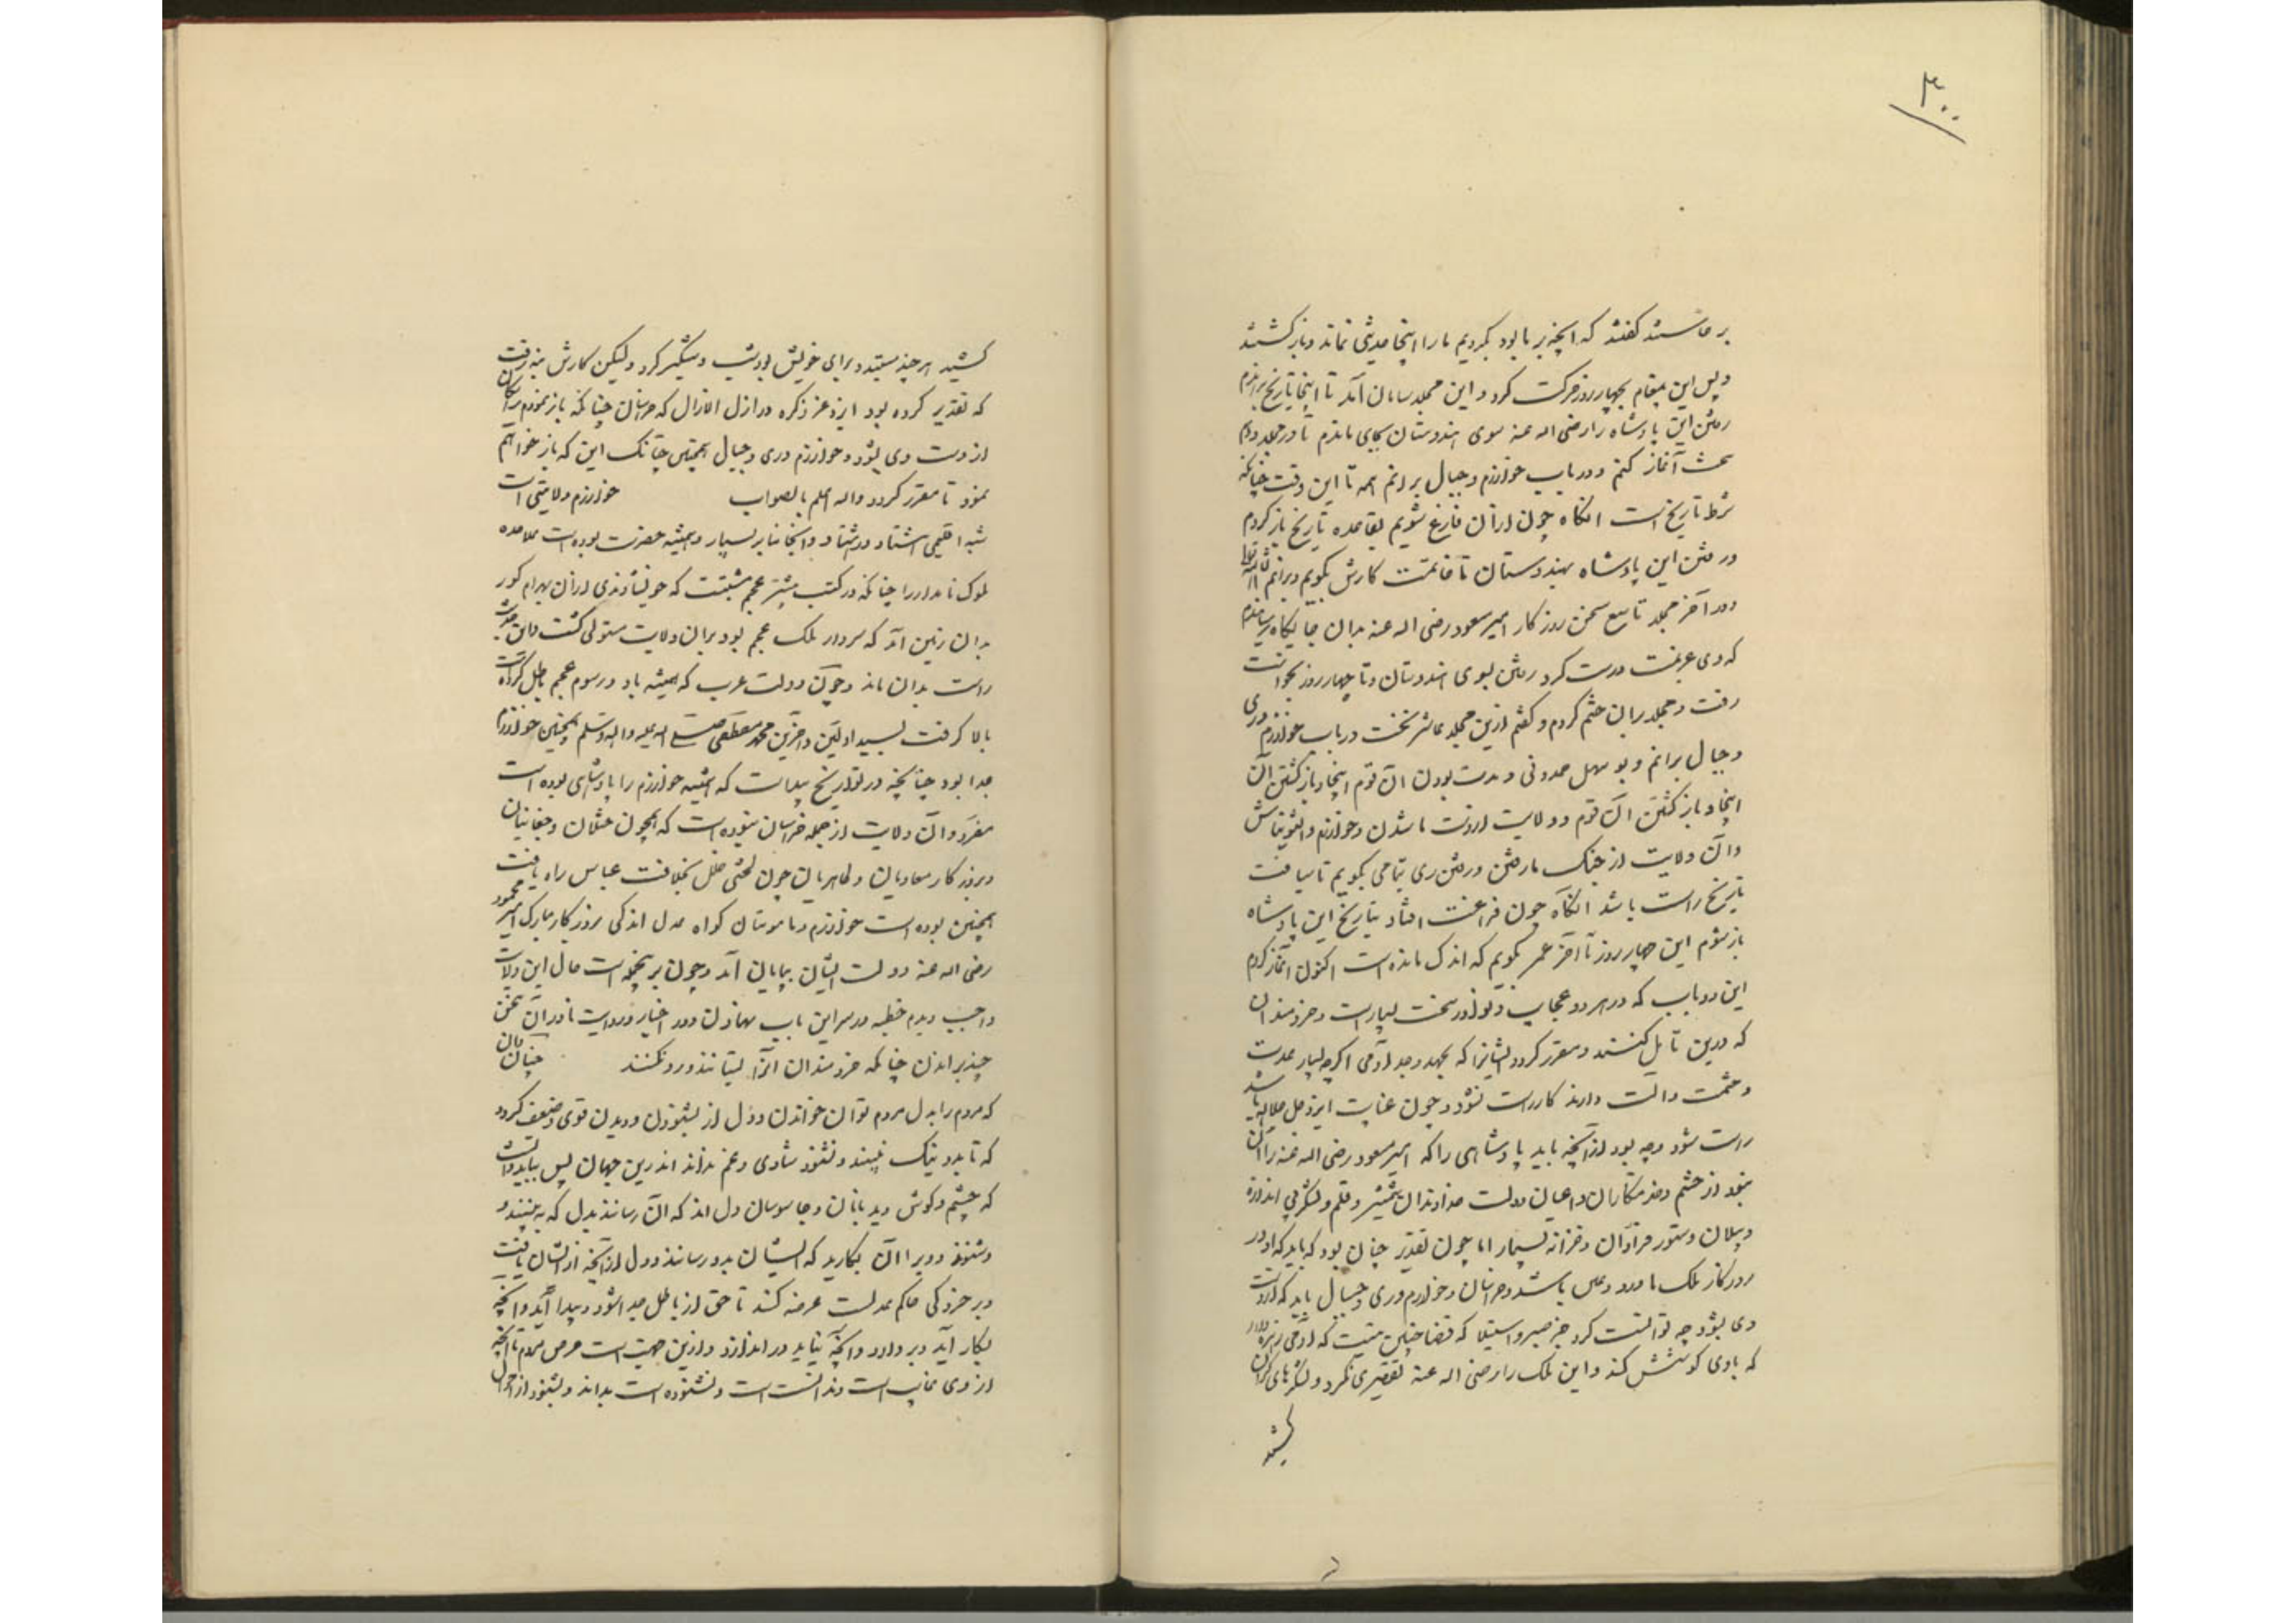 ۳۰۰
بر خاستند گفتند که آنچه بر ما بود بکردیم ما را اینجا حدیثی نماند و باز کشتند
و پس این بمقام بچهار روز حرکت کرد و این مجلد بپایان آمد تا اینجا تاریخ براندم
رفتن این پادشاه را رضی اله عنه سوی هندوستان بجای ماندم تا در مجلد دهم
نخست آغاز کنم و در باب خوارزم و جبال برانم هم تا این وقت چنانکه
شرط تاریخ است انکاه چون از آن فارغ شویم بقاعده تاریخ باز کردم
در رفتن این پادشاه بهندوستان تا خاتمت کارش بگویم و برانم انشا
و در آخر مجلد تاسع سخن روزکار امیر مسعود رضی اله عنه بدان جایکاه رسانیدم
که وی عزیمت درست کرد رفتن بسوی هندوستان و تا چهار روز بخواست
رفت و مجلد بر آن ختم کردم و گفتم ازین مجلد عاشر نخست در باب خوارزم و ری
و جبال برانم و بو سهل حمدونی و مدت بودن آن قوم اینجا و باز کشتن آن
اینجا و باز کشتن آن قوم و ولایت از دست ما شدن و خوارزم و التونتاش
و آن ولایت از چنک ما رفتن و رفتن ری بتمامی بگویم تا سیاقت
تاریخ راست باشد انکاه چون فراغت افتاد بتاریخ این پادشاه
باز شوم این چهار روز تا آخر عمر بگویم که اندک مانده است اکنون آغاز کردم
این دو باب که در هر دو عجایب و نوادر سخت بسیار است و خردمندان
که درین تامل کنند و مقرر کردد ایشانرا که بجهد و جد آدمی اکرچه بسیار عدت
و حشمت و آلت دارند کار راست نشود و چون عنایت ایزد جل جلاله باشد
راست شود و چه بود از آنچه باید پادشاهی را که امیر مسعود رضی اله عنه را آن
نبود از حشم و خدمتکاران و اعیان دولت خداوندان شمشیر و قلم و لشکر بی اندازه
و پیلان و ستور فراوان و خزانه بسیار اما چون تقدیر چنان بود که باید که او در
روزکار ملک با درد و غبن باشد و خراسان و خوارزم و ری و جبال باید که از دست
وی بشود چه توانست کرد جز صبر و استسلام که قضا چنین نیست که آدمی زهره دارد
که با وی کوشش کند و این ملک را رضی اله عنه تقصیری نکرد و لشکرهای کران
کشید
کشید هر چند مستبد و برای خویش بود شب و شبکیر کرد و لیکن کارش بنه رفت
که تقدیر کرده بود ایزد عز ذکره در ازل الازال که خراسان چنانکه باز نمودم رایکان
از دست وی بشود و خوارزم و ری و جبال همچنین چنانک این که باز خواهم
نمود تا مقرر کردد واله اعلم بالصواب خوارزم ولایتی است
شبه اقلیمی هشتاد در هشتاد و آنجا منابر بسیار و همیشه حضرت بوده است علاحده
ملوک نامدار را چنانکه در کتب سیر عجم مثبتست که خویشاوندی از آن بهرام کور
بدان زمین آمد که سردار ملک عجم بود بر آن ولایت مستولی کشت و این حدیث
راست بدان ماند و چون دولت عرب که همیشه باد و رسوم عجم باطل کرده است
بالا کرفت بسید اولین و آخرین محمد مصطفی صلے اله علیه واله وسلم همچنین خوارزم
جدا بود چنانچه در تواریخ پیداست که همیشه خوارزم را پادشاهی بوده است
مفرد و آن ولایت از جمله خراسان نبوده است که همچون ختلان و چغانیان
و بروزکار معاذیان و طاهریان چون لختی خلل بخلافت عباس راه یافت
همچنین بوده است خوارزم و مامونیان کواه عدل اندکی بروزکار مبارک امیر محمود
رضی اله عنه دولت ایشان بپایان آمد و چون بر نجمله است حال این ولایت
واجب دیدم خطبه در سر این باب نهادن و در اخبار و روایت نادر آن سخن
چند براندن چنانکه خردمندان آنرا بستانند و رد نکنند چنان دان
که مردم را بدل مردم توان خواندن و دل از بشنودن و دیدن قوی و ضعیف کردد
که تا بد و نیک نبیند و نشنود شادی و غم نداند اندرین جهان پس بباید دانست
که چشم و کوش دیدبانان و جاسوسان دل اند که آن رسانند بدل که به بینند و
بشنوند و ویرا آن بکار آید که ایشان بدو رسانند و دل از آنچه از ایشان یافت
و بر خرد کی حاکم عدلست عرضه کند تا حق از باطل جدا شود و پیدا آید و آنچه
بکار آید بر دارد و آنچه نیاید در اندازد و ازین جهت است حرص مردم تا آنچه
از وی غایب است و ندانسته است و نشنوده است بداند و بشنود از احوال